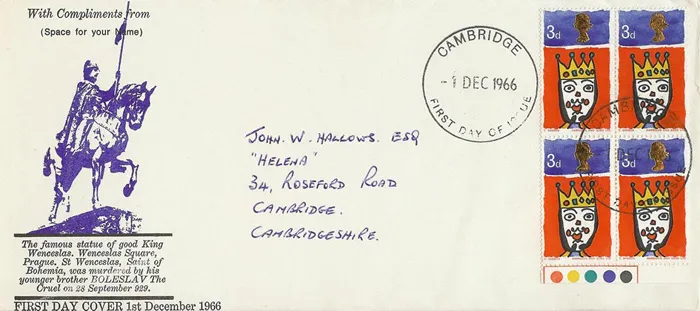 With Compliments from
(Space for your Name)
The famous statue of good King
Wenceslas. Wenceslas Square,
Prague. St Wenceslas, Saint of
Bohemia, was murdered by his
younger brother BOLESLAV The
Cruel on 28 September 929.
FIRST DAY COVER 1st December 1966
JOHN. W. HALLOWS. ESQ
"HELENA"
34, ROSEFORD ROAD
CAMBRIDGE.
CAMBRIDGESHIRE.
CAMBRIDGE
-1 DEC 1966
FIRST DAY OF ISSUE
3d
3d
3d
3d